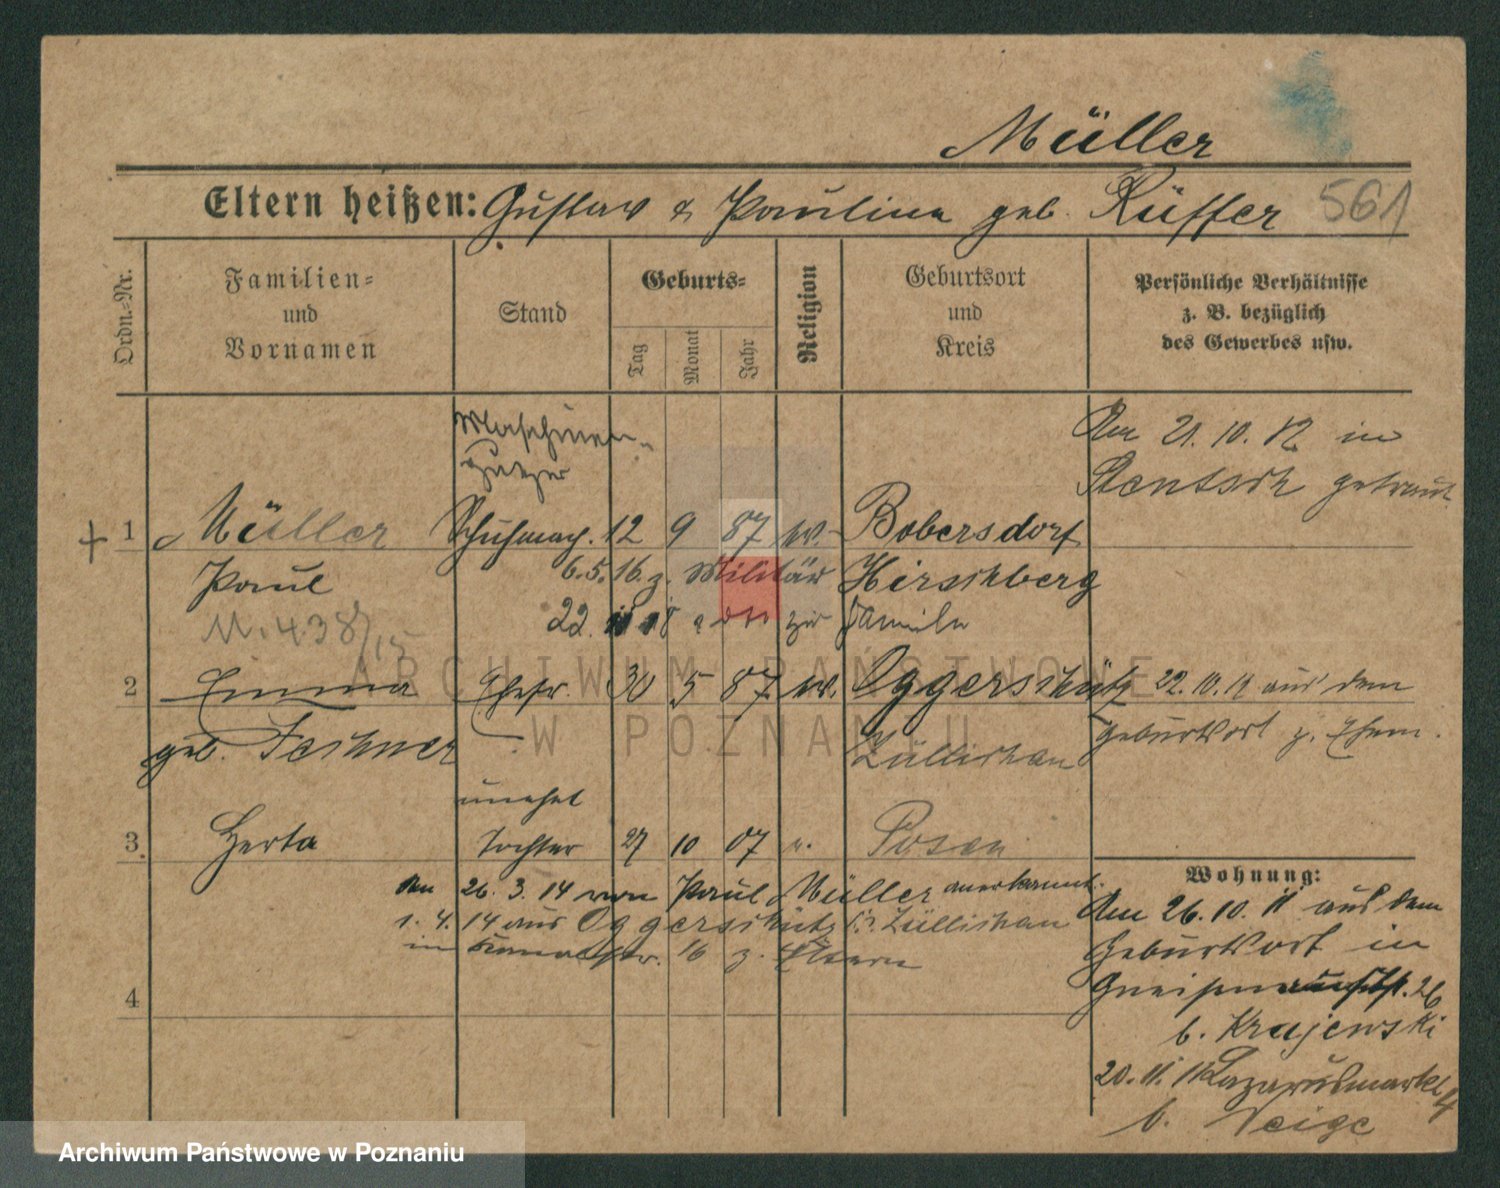 Müller
Eltern heißen: Gustav & Pauline geb. Rüffer 561
Ordn.-Nr.
Familien-
und
Vornamen
Stand
Geburts-
Tag
Monat
Jahr
Religion
Geburtsort
und
Kreis
Persönliche Verhältnisse
z. B. bezüglich
des Gewerbes usw.
Maschinen-
putzer
Am 21. 10. 12 in
Stentsch getraut
1 Müller Schuhmach. 12 9 87 ev. Bobersdorf
Paul 6. 5. 16. z. Militär Hirschberg
22. 18 zur Familie
M. 438/15
2 Emma Ehefr. 30 5 87 ev. Oggerschütz 22. 10. 11 aus dem
geb. Feshner Züllichau Geburtsort z. Ehem.
unehel
3. Herta Tochter 27 10 07 Posen
Am 26. 3. 14 von Paul Müller anerkannt.
1. 4. 14 aus Oggerschütz Kr. Züllichau
in Kanalstr. 16 z. Eltern
4
Wohnung:
Am 26. 10. 11 aus dem
Geburtsort in
Gneisenaustr. 26
b. Krajewski
20. 11. 11 Lazarusmarkt 4
b. Neige
ARCHIWUM PAŃSTWOWE
W POZNANIU
Archiwum Państwowe w Poznaniu